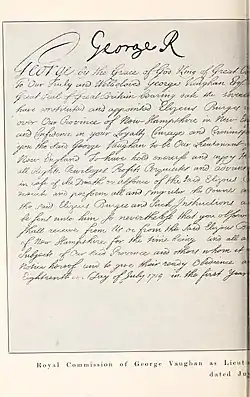 George R
George by the Grace of God King of Great
To Our Trusty and Welbeloved George Vaughan Esqr
Great Seal of Great Britain bearing date the
have constituted and appointed Elizeus Burges
over Our Province of New Hampshire in New
and Confidence in your Loyalty Courage and
you the said George Vaughan to be Our Lieutenant
New England To have hold exercise and enjoy
all Rights Priviledges Profits Perquisites and
in case of the Death or absence of the said Elizeus
and perform all and singular the Powers
the said Elizeus Burges and Such Instructions
be sent unto him So nevertheless that you
shall receive from Us or from the said Elizeus
of New Hampshire for the time being and all
Subjects of Our said Province and others whom
notice hereof and to give their ready Obedience
Eighteenth Day of July in the first Year
Royal Commission of George Vaughan as
dated